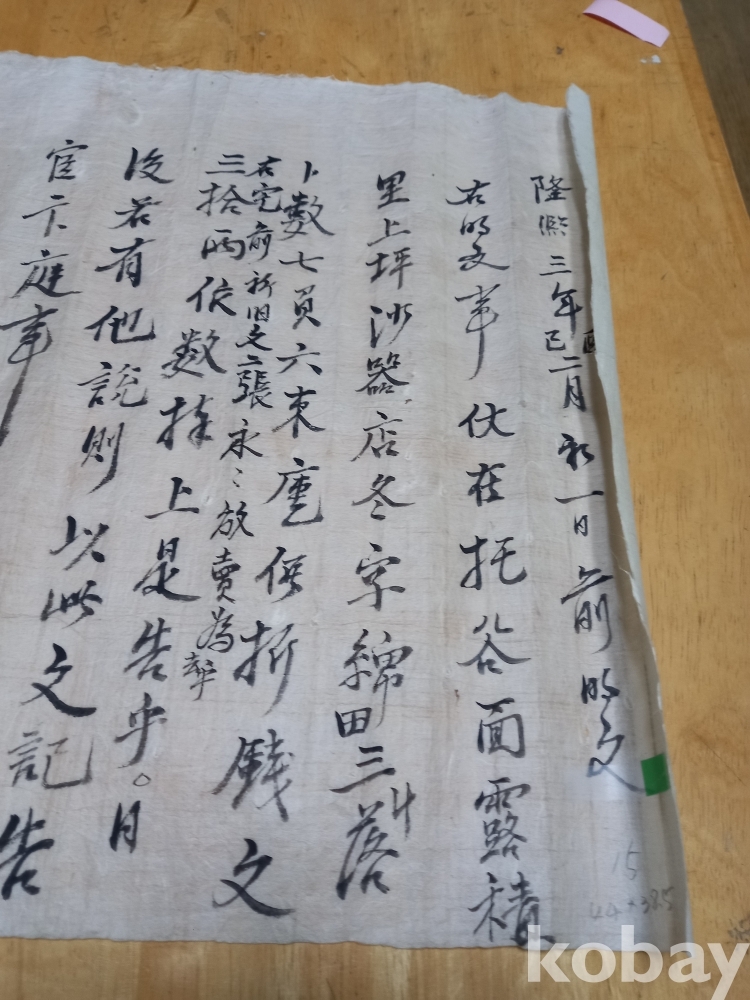 隆熙三年己酉二月初一日 前明文
右明文事 伏在托谷面露積
里上坪沙器店冬字綿田三斗落
卜數七負六束庫 価折錢文
右宅前 新旧文二張 永々放賣為乎
三拾両 依数捧上是告乎○日
後若有他説則 以此文記告
官卞庭事
告
15
44 × 38.5
kobay